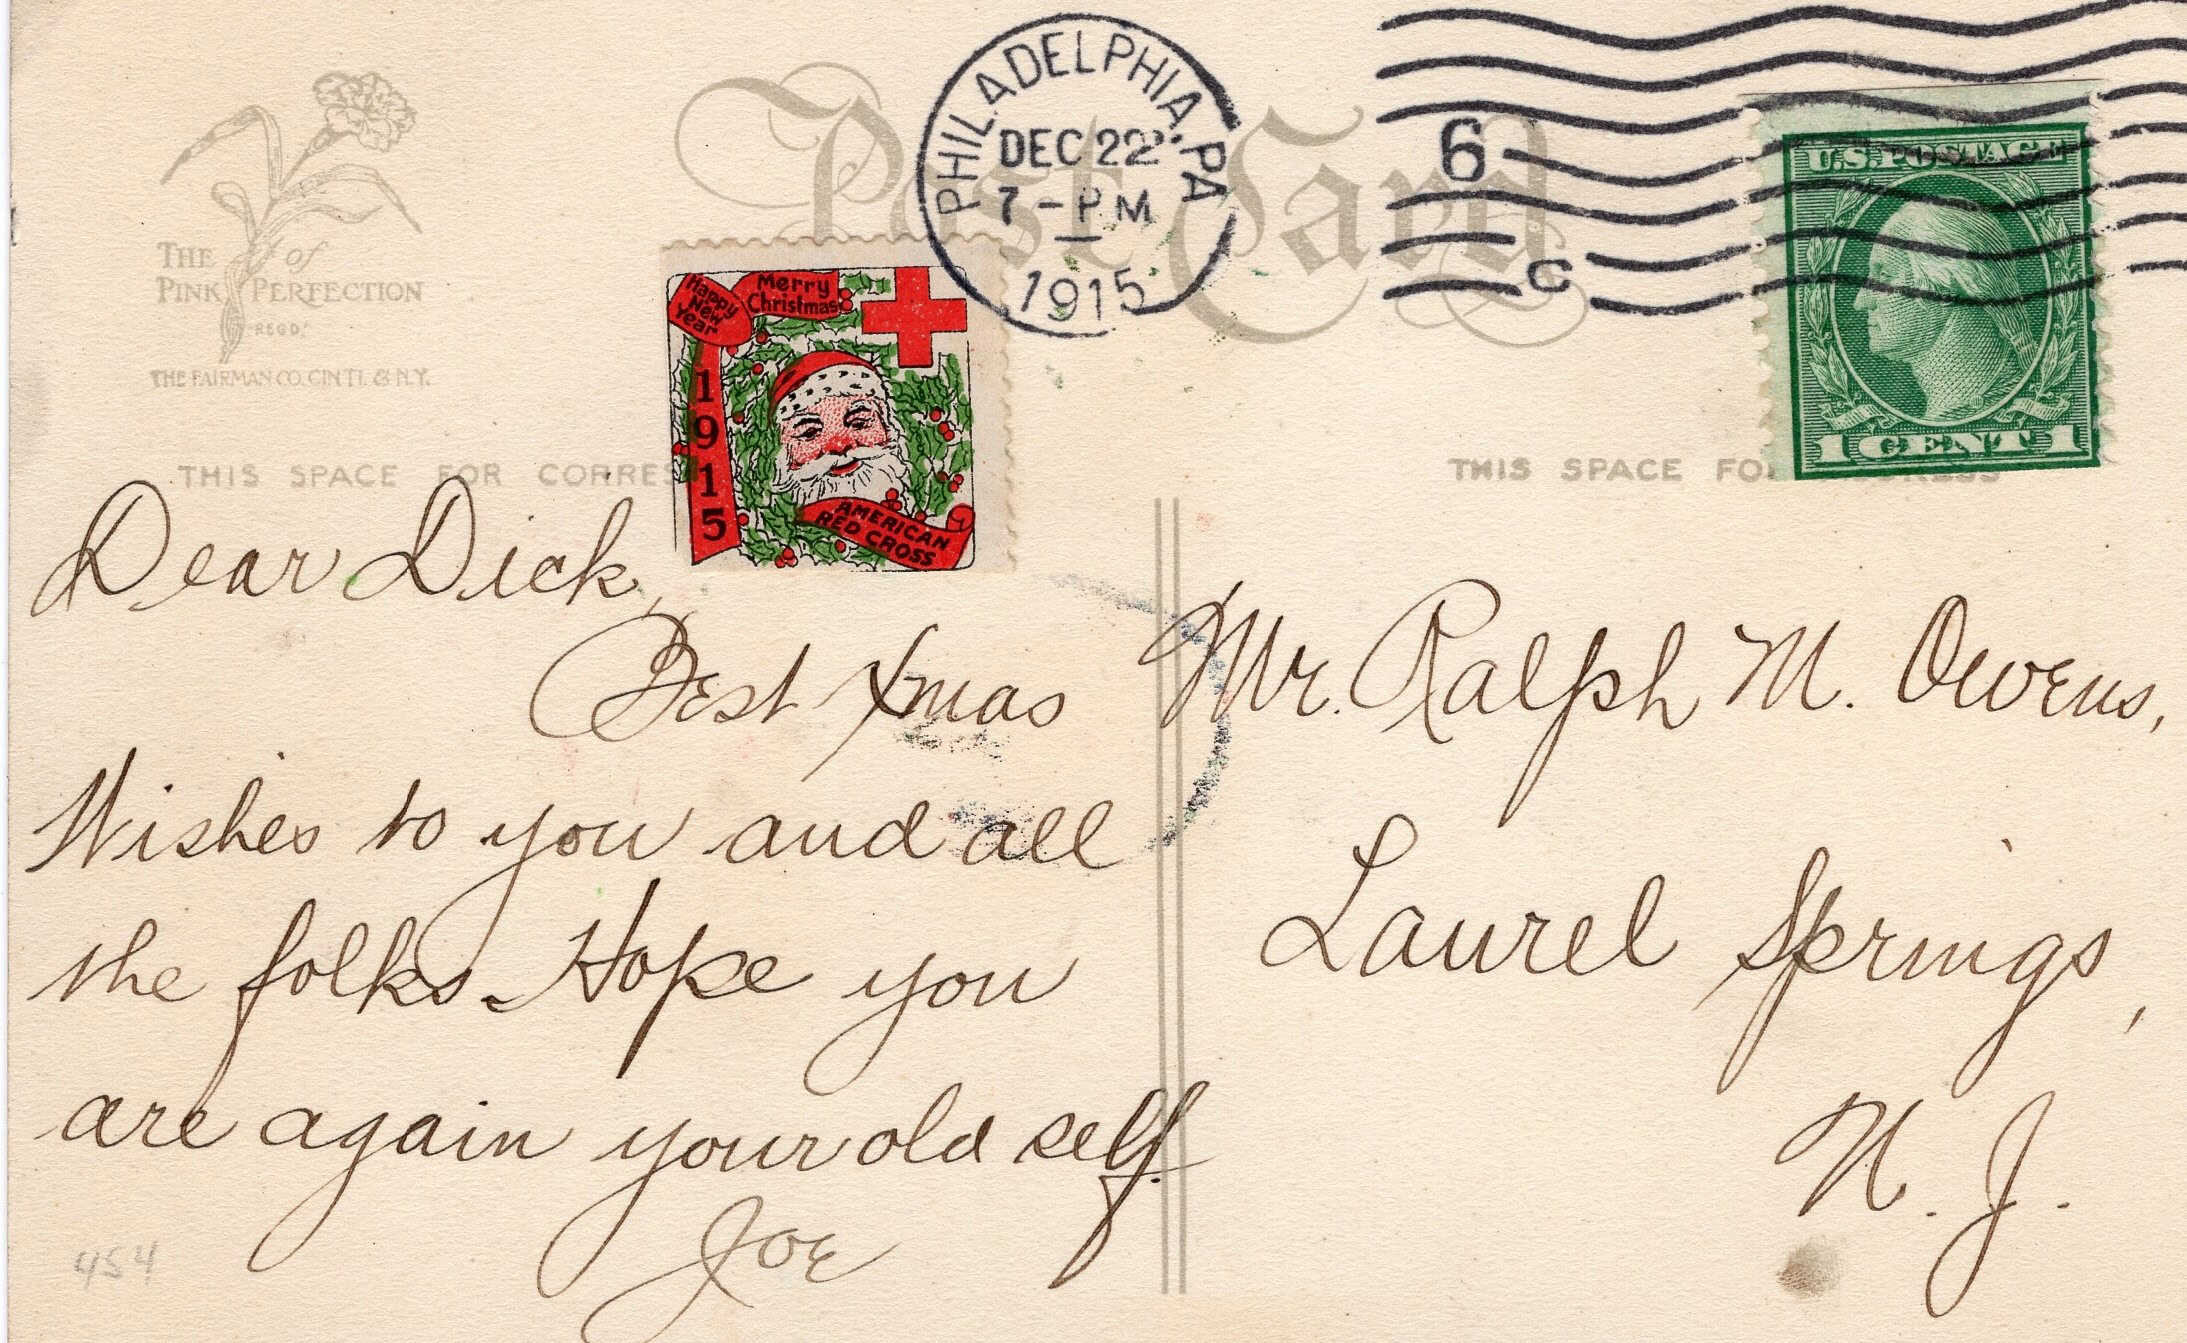 THE of
PINK PERFECTION
REGD.
THE FAIRMAN CO. CIN'TI. & N.Y.
Post Card
PHILADELPHIA, PA
DEC 22
7-PM
1915
6
C
U.S. POSTAGE
1 CENT 1
Happy
New
Year
Merry
Christmas
1915
AMERICAN
RED CROSS
THIS SPACE FOR CORRES
THIS SPACE FO
Dear Dick,
Best Xmas
Wishes to you and all
the folks. Hope you
are again your old self.
Joe
Mr. Ralph M. Owens,
Laurel Springs,
N. J.
454